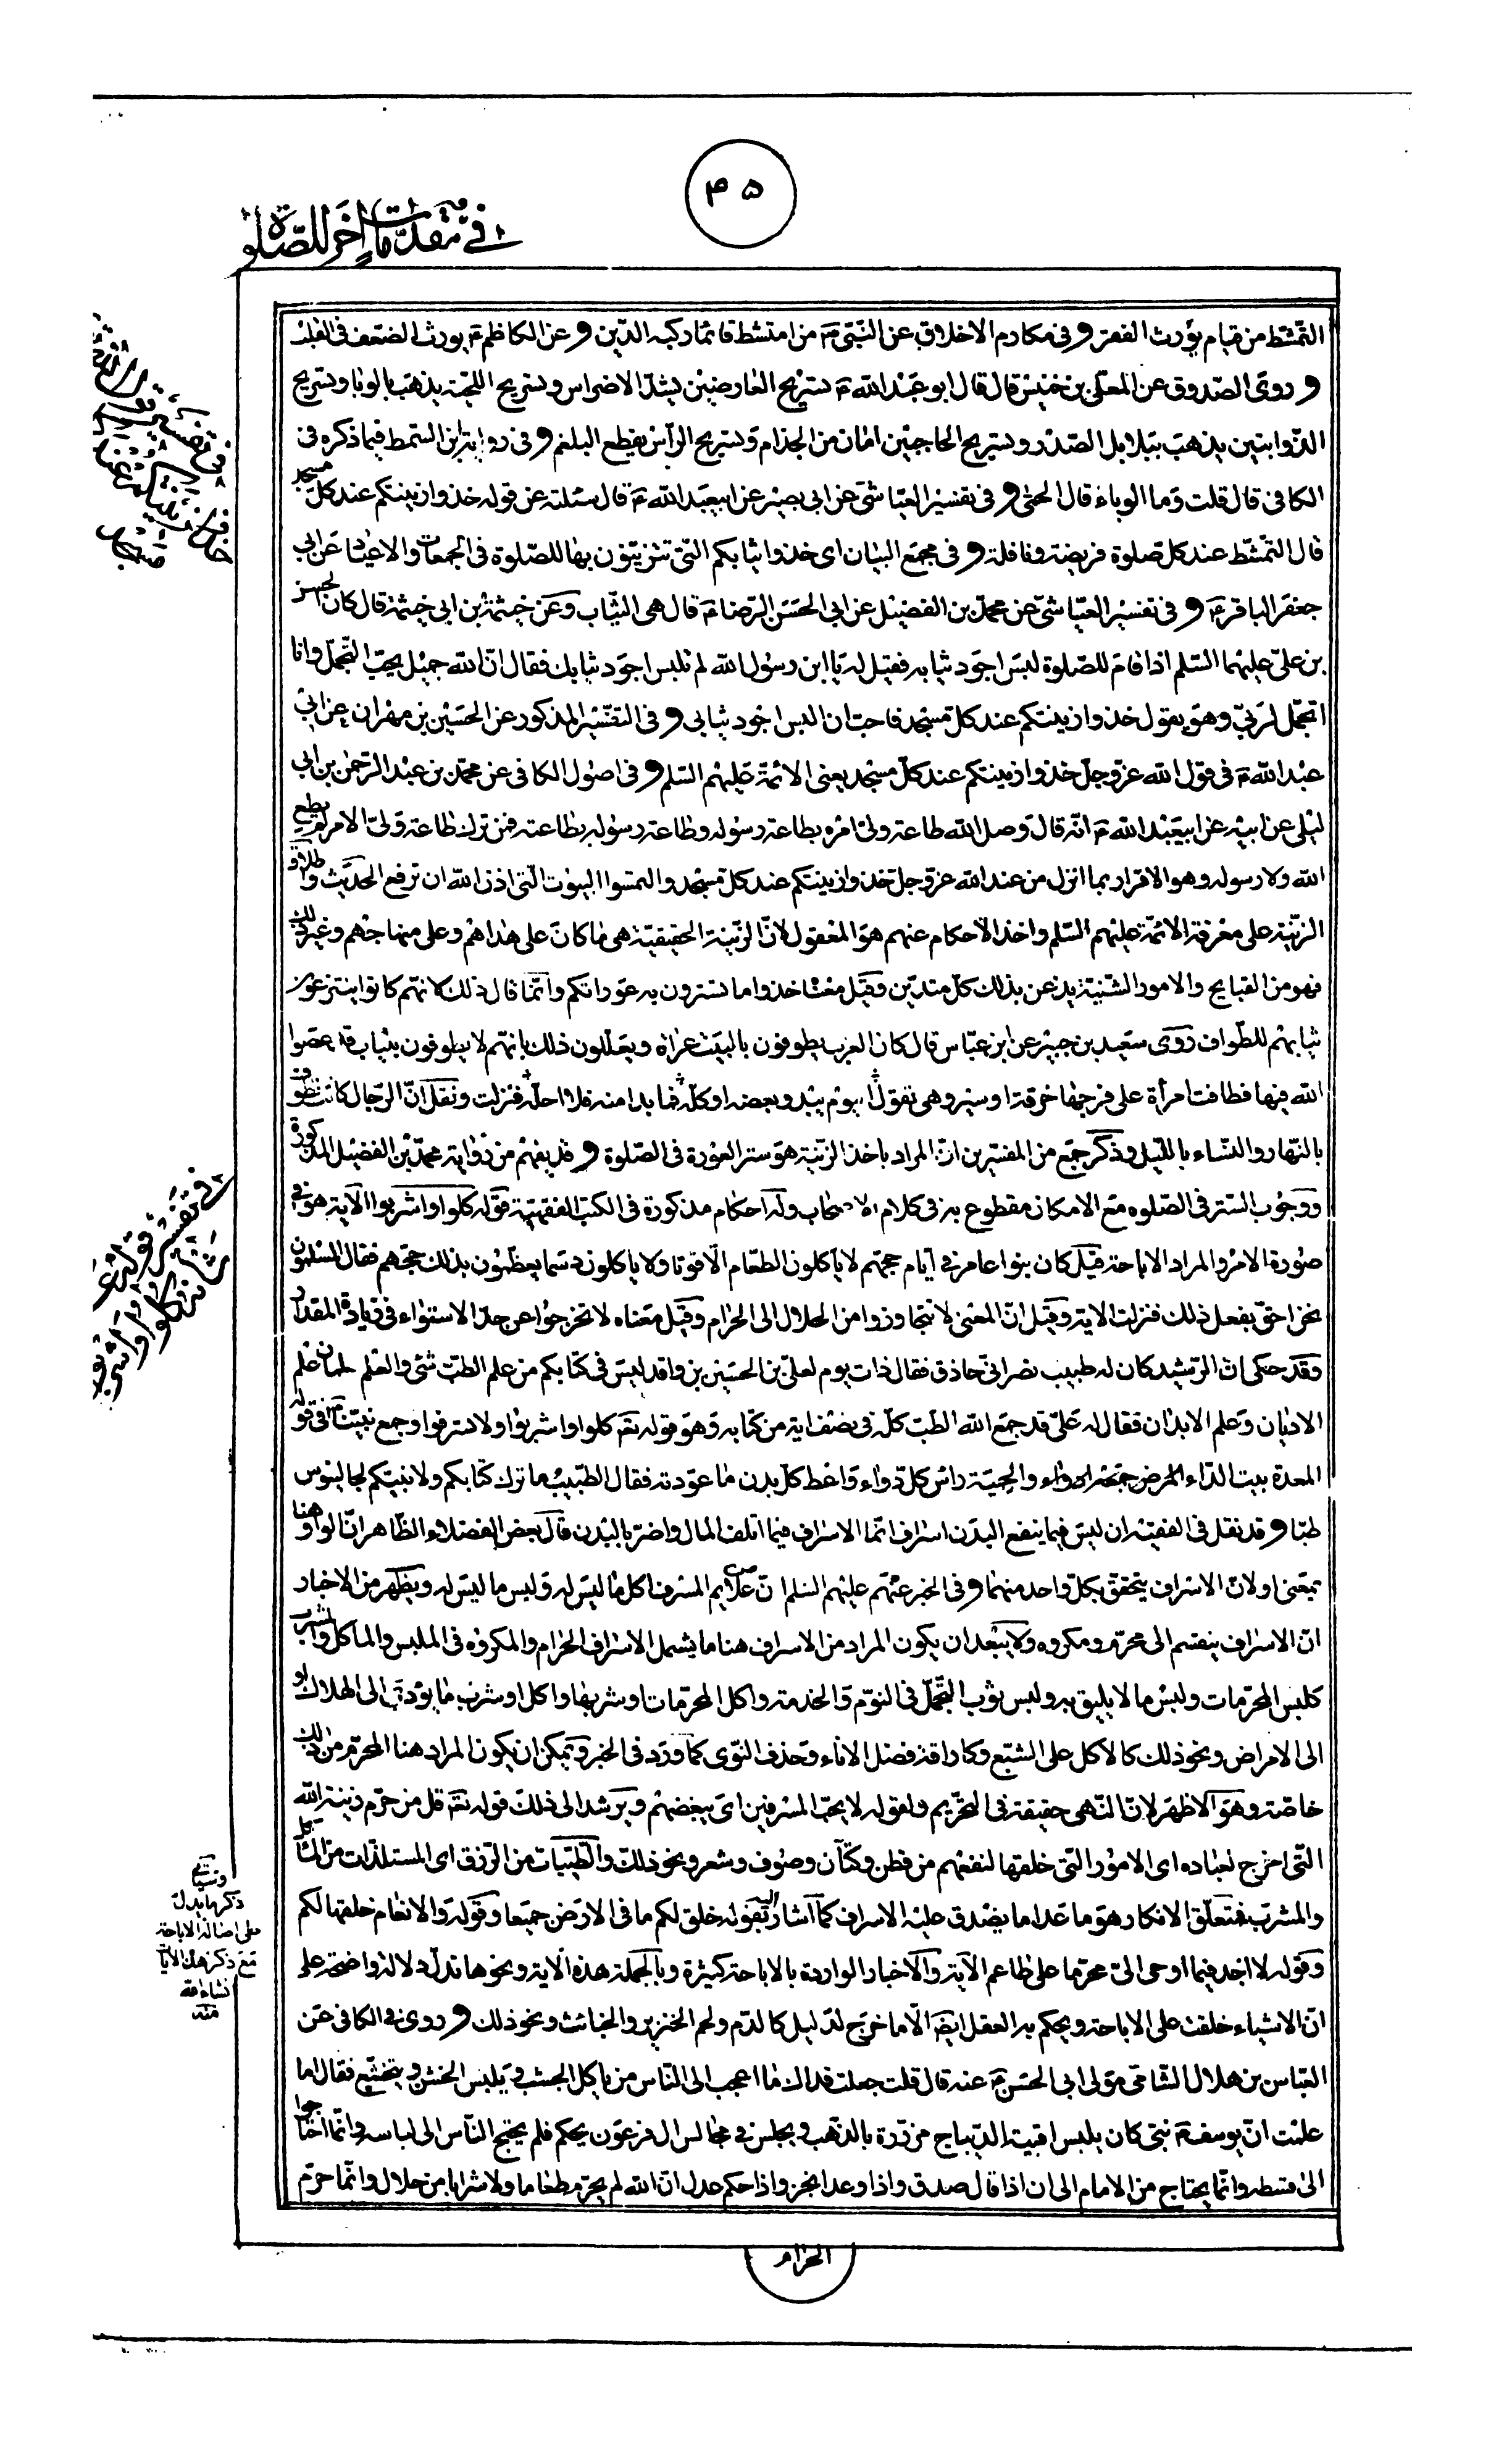 ۴۵
في مقدمات اخر للصلوة
التمشط من قيام يورث الفقر و في مكارم الاخلاق عن النبي ص من امتشط قائما ركبه الدين و عن الكاظم ع يورث الضعف في القلب
و روى الصدوق عن المعلى بن خنيس قال قال ابو عبد الله ع تسريح العارضين يشد الاضراس و تسريح اللحية يذهب بالوبا و تسريح
الذوابتين يذهب ببلابل الصدر و تسريح الحاجبين امان من الجذام و تسريح الرأس يقطع البلغم و في رواية ابن السمط فيما ذكره في
الكافي قال قلت و ما الوباء قال الحمى و في تفسير العياشي عن ابي بصير عن ابيعبد الله ع قال سئلته عن قوله خذوا زينتكم عند كل مسجد
قال التمشط عند كل صلوة فريضة و نافلة و في مجمع البيان اى خذوا ثيابكم التي تتزينون بها للصلوة في الجمعات و الاعياد عن ابي
جعفر الباقر ع و في تفسير العياشي عن محمد بن الفضيل عن ابي الحسن الرضا ع قال هي الثياب و عن خيثمة بن ابي خيثمة قال كان الحسن
بن علي عليهما السلم اذا قام للصلوة لبس اجود ثيابه فقيل له يا ابن رسول الله لم تلبس اجود ثيابك فقال ان الله جميل يحب التجمل و انا
اتجمل لربي و هو يقول خذوا زينتكم عند كل مسجد فاحب ان البس اجود ثيابي و في التفسير المذكور عن الحسين بن مهران عن ابي
عبد الله ع في قول الله عز و جل خذوا زينتكم عند كل مسجد يعني الائمة عليهم السلم و في اصول الكافي عن محمد بن عبد الرحمن بن ابي
ليلى عن ابيه عن ابيعبد الله ع انه قال وصل الله طاعة ولي امره بطاعة رسوله و طاعة رسوله بطاعته فمن ترك طاعة ولي الامر لم يطع
الله و لا رسوله و هو الاقرار بما انزل من عند الله عز و جل خذوا زينتكم عند كل مسجد و التمسوا البيوت التي اذن الله ان ترفع الحديث و اطلاق
الزينة على معرفة الائمة عليهم السلم و اخذ الاحكام عنهم هو المعقول لان الزينة الحقيقية هي ما كان على هداهم و على منهاجهم و غير ذلك
فهو من القبايح و الامور الشنيعة يذعن بذلك كل متدين و قيل معناه خذوا ما تسترون به عوراتكم و انما قال ذلك لانهم كانوا ينتزعون
ثيابهم للطواف روى سعيد بن جبير عن ابن عباس قال كان العرب يطوفون بالبيت عراة و يعللون ذلك بانهم لا يطوفون بثياب قد عصوا
الله فيها فطافت امرأة على فرجها خرقة او سير و هي تقول اليوم يبدو بعضه او كله فما بدا منه فلا احله فنزلت و نقل ان الرجال كانت تطوف
بالنهار و النساء بالليل و ذكر جمع من المفسرين ان المراد باخذ الزينة هو ستر العورة في الصلوة و قد يفهم من رواية محمد بن الفضيل المذكورة
و وجوب الستر في الصلوه مع الامكان مقطوع به في كلام الاصحاب و له احكام مذكورة في الكتب الفقهية قوله كلوا و اشربوا الآية هو في
صورة الامر و المراد الاباحة قيل كان بنوا عامر في ايام حجهم لا ياكلون الطعام الا قوتا و لا ياكلون دسما يعظمون بذلك حجهم فقال المسلمون
نحن احق بفعل ذلك فنزلت الاية و قيل ان المعنى لا تتجاوزوا من الحلال الى الحرام و قيل معناه لا تخرجوا عن حد الاستواء في زيادة المقدار
و قد حكى ان الرشيد كان له طبيب نصراني حاذق فقال ذات يوم لعلي بن الحسين بن واقد ليس في كتابكم من علم الطب شئ و العلم علمان علم
الاديان و علم الابدان فقال له علي قد جمع الله الطب كله في نصف اية من كتابه و هو قوله تع كلوا و اشربوا و لا تسرفوا و جمع نبينا في قوله
المعدة بيت الداء و الحمية راس كل دواء و اعط كل بدن ما عودته فقال الطبيب ما ترك كتابكم و لا نبيكم لجالينوس
طبا و قد نقل في الفقيه ان ليس فيما ينفع البدن اسراف انما الاسراف فيما اتلف المال و اضر بالبدن قال بعض الفضلاء الظاهر ان الواو هنا
بمعنى او لان الاسراف يتحقق بكل واحد منهما و في الخبر عنهم عليهم السلم ان من علايم المسرف اكل ما ليس له و لبس ما ليس له و يظهر من الاخبار
ان الاسراف ينقسم الى محرم و مكروه و لا يبعد ان يكون المراد من الاسراف هنا ما يشمل الاسراف الحرام و المكروه في الملبس و الماكل و المشرب
كلبس المحرمات و لبس ما لا يليق به و لبس ثوب التجمل في النوم و الخدمة و اكل المحرمات و شربها و اكل او شرب ما يؤدي الى الهلاك او
الى الامراض و نحو ذلك كالاكل على الشبع و كاراقة فضل الاناء و حذف النوى كما ورد في الخبر و يمكن ان يكون المراد هنا المحرم من ذلك
خاصة و هو الاظهر لان النهي حقيقة في التحريم و لقوله لا يحب المسرفين اى يبغضهم و يرشد الى ذلك قوله تع قل من حرم زينة الله
التي اخرج لعباده اى الامور التي خلقها لنفعهم من قطن و كتان و صوف و شعر و نحو ذلك و الطيبات من الرزق اى المستلذات من الماكل
و المشرب فمتعلق الانكار هو ما عدا ما يصدق عليه الاسراف كما اشار اليه بقوله خلق لكم ما في الارض جميعا و قوله و الانعام خلقها لكم
و قوله لا اجد فيما اوحى الى محرما على طاعم الاية و الاخبار الواردة بالاباحة كثيرة و بالجملة هذه الاية و نحوها تدل دلالة واضحة على
ان الاشياء خلقت على الاباحة و يحكم به العقل ايض الا ما خرج لدليل كالدم و لحم الخنزير و الخبائث و نحو ذلك و روى في الكافي عن
العباس بن هلال الشامي مولى ابي الحسن ع عنه قال قلت جعلت فداك ما اعجب الى الناس من ياكل الجشب و يلبس الخشن و يتخشع فقال اما
علمت ان يوسف ع نبي كان يلبس اقبية الديباج مزررة بالذهب و يجلس في مجالس ال فرعون يحكم فلم يحتج الناس الى لباسه و انما احتاجوا
الى قسطه و انما يحتاج من الامام الى ان اذا قال صدق و اذا وعد انجز و اذا حكم عدل ان الله لم يحرم طعاما و لا شرابا من حلال و انما حرم
الحرام
في تفسير قوله تع
خذوا زينتكم عند
مسجد
في تفسير قوله عز
شانه كلوا و اشربوا
و سيأتي
ذكرها بدل
على اصالة الاباحة
مع ذكر هذه الايات
انشاء الله
منه